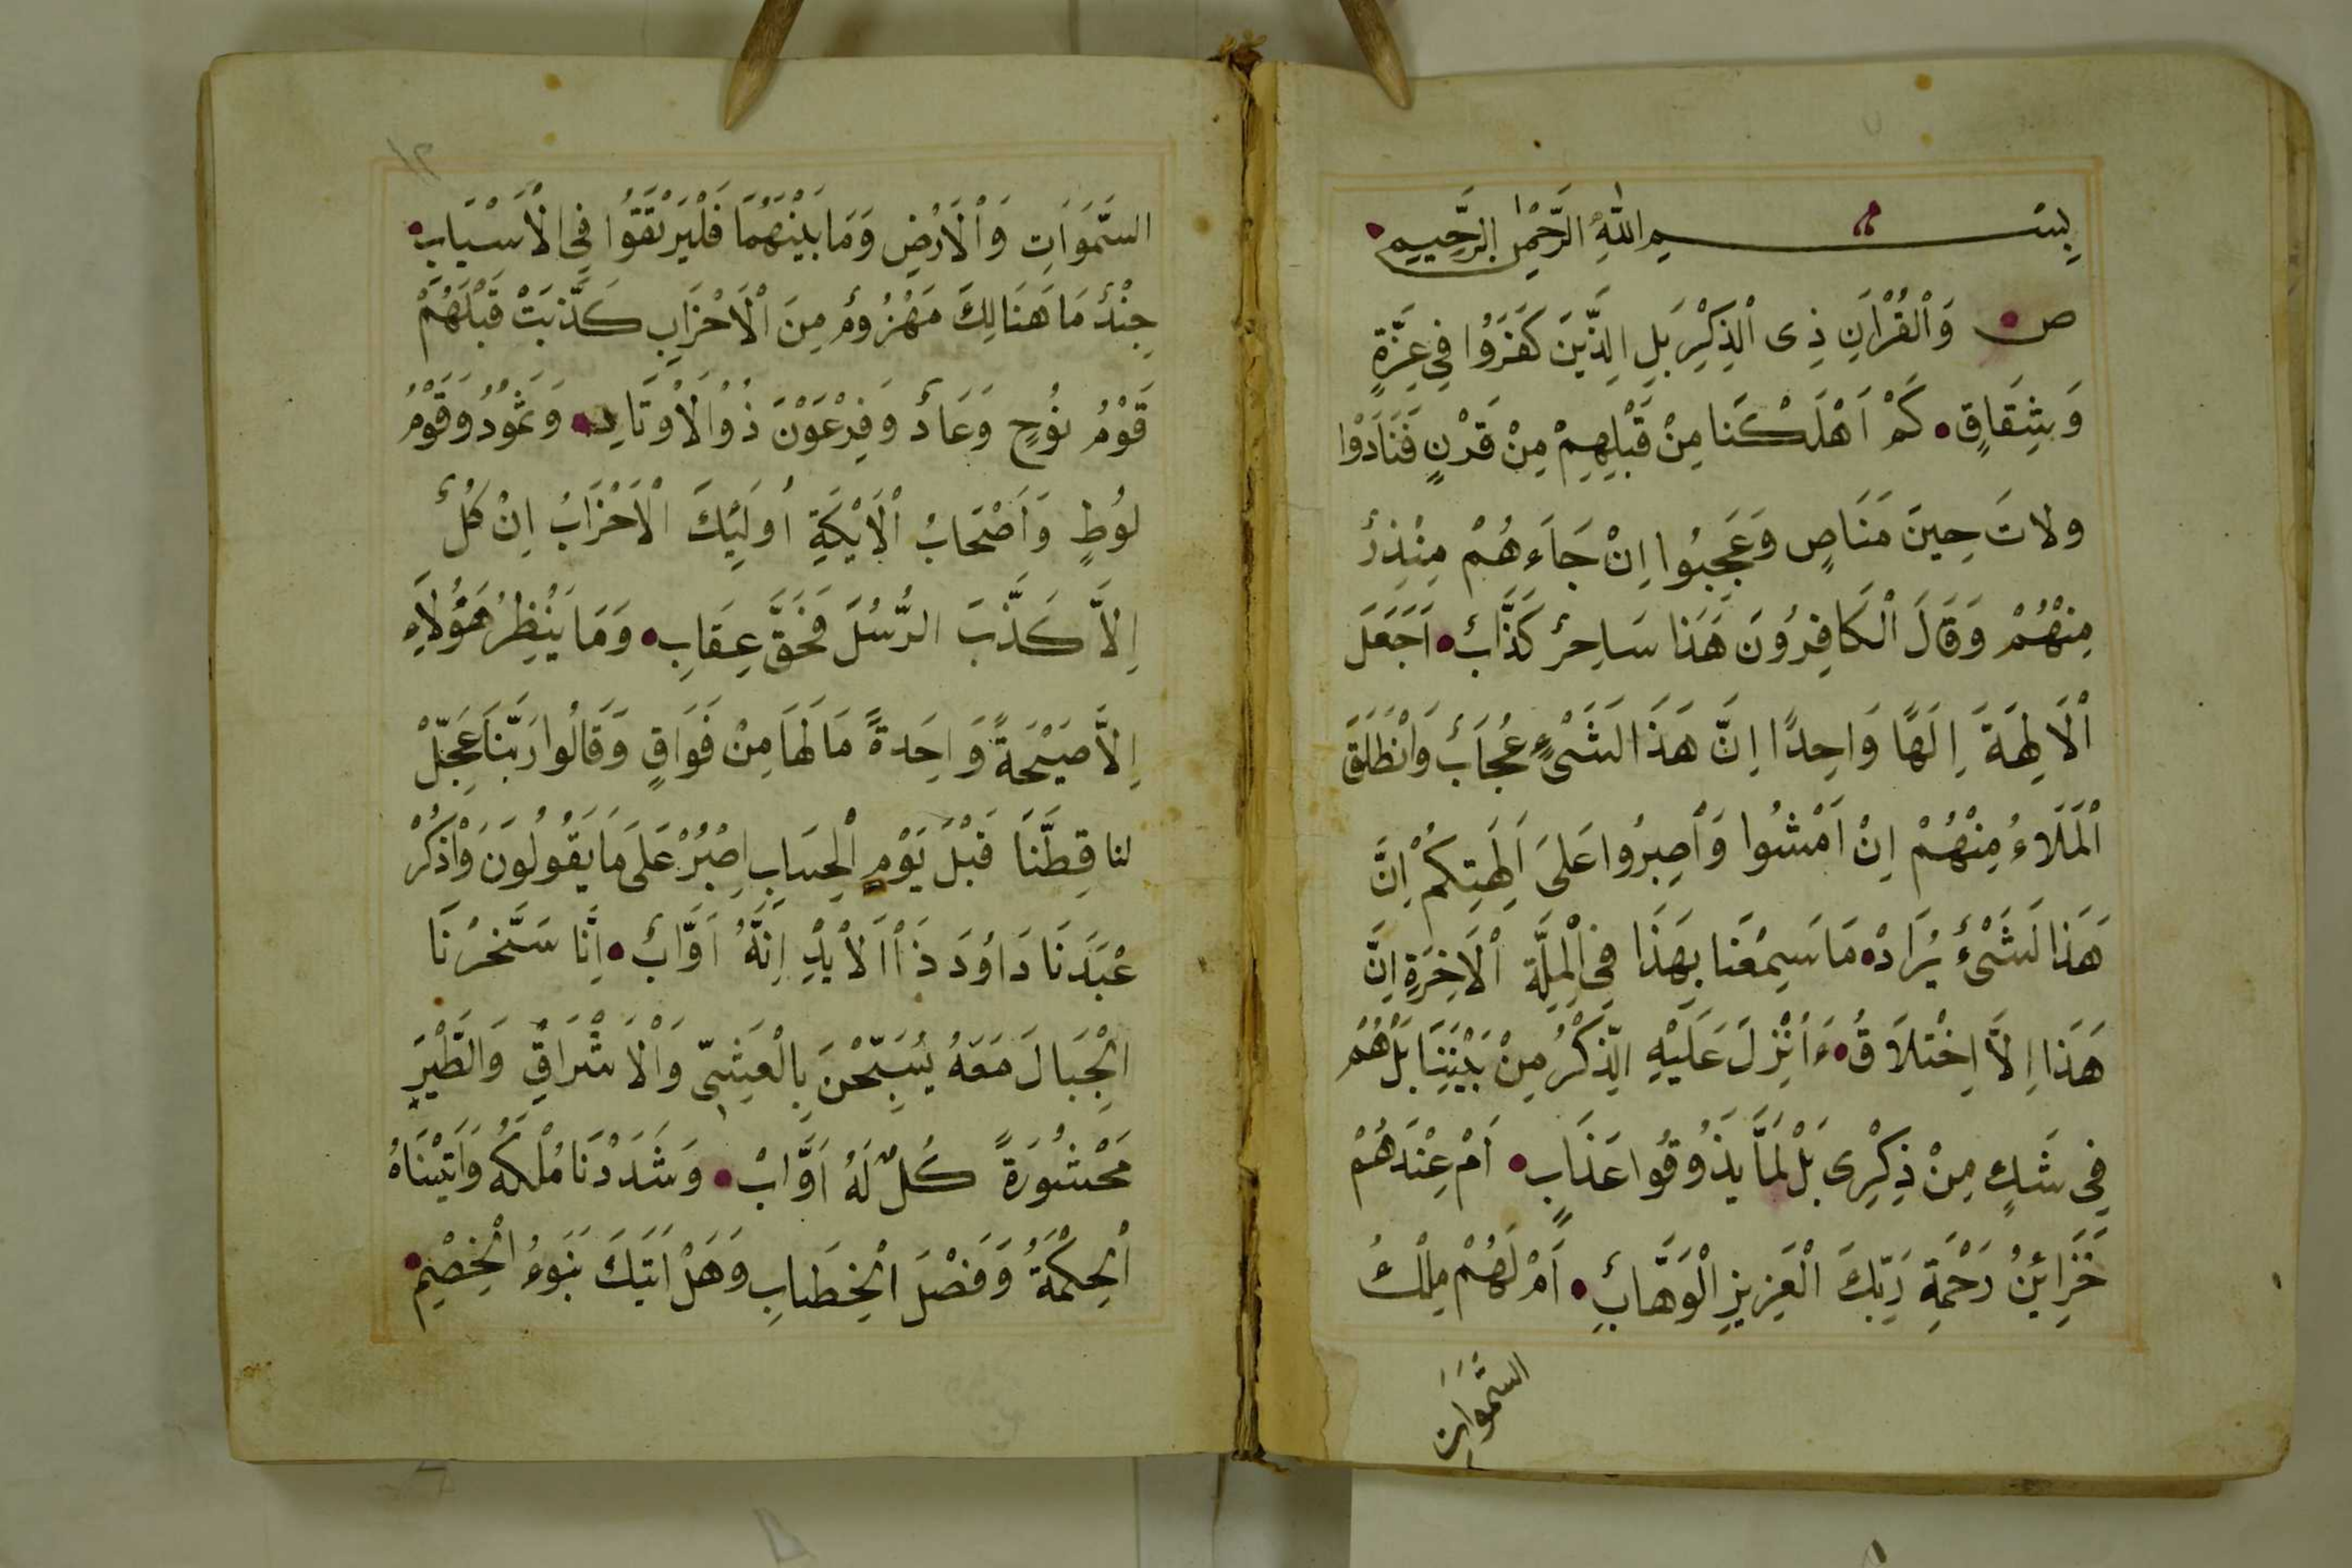 بِسْمِ اللهِ الرَّحْمٰنِ الرَّحِيمِ
ص وَالْقُرْاٰنِ ذِى الْذِكْرِ بَلِ الِذَّيَنَ كَفَرَوُا فِى عِزَّةٍ
وَشِقَاقٍ كَمْ اَهْلَكْنَا مِنْ قَبْلِهِمْ مِنْ قَرْنٍ فَنَادَوْا
ولاتَ حِينَ مَنَاصٍ وَعَجِبُوا اِنْ جَاَءهُمْ مِنْذِرٌ
مِنْهُمْ وَقَالَ الْكَافِرُونَ هَذَا سَاحِرٌ كَذَّابٌ اَجَعَلَ
اْلَالِهَةَ اِلَهًا وَاحِدًا اِنَّ هَذَا لَشَىْءٍ عُجَابٌ وَانْطَلَقَ
اْلمَلَاءُ مِنْهُمْ اِنْ اَمْشُوا وَاْصِبرُوا عَلَى اَلِهَتِكُمْ اِنَّ
هَذَا لَشَىْءٌ يُرَادْ مَا سَمِعْنَا بِهَذَا فِى اْلمِلَّةِ اْلَاخِرَةِ اِنَّ
هَذَا اِلاَّ اِخْتلَاَقُ ءَاُنْزِلَ عَلَيْهِ الِذّكْرُ مِنْ بَيْنِنَا بَلْ هُمْ
فِى شَكٍ مِنْ ذِكْرِى بَلْ لَمَّا يذُوقُوا عَذَابِ اَمْ عِنْدَهُمْ
خَزَائِنُ رَحْمَةِ رَبِّكَ الْعَزِيزِ الْوَهَّابِ اَمْ لَهُمْ مِلْكُ
السَّمَوَاتِ
١٢
السَّمَوَاتِ وَاْلَارْضِ وَمَا بَيْنَهُمَا فَلْيَرْتَقَوُا فِى الْاَسْبَابِ
جِنْدٌ مَا هَنَالِكَ مَهْزُومٌ مِنَ اْلَاحْزَابِ كَذَّبَتْ قَبْلَهُمْ
قَوْمُ نُوحٍ وَعَادٌ وَفِرْعَوْنَ ذُوْالْاَوْتَادِ وَثَمُودُ وَقَوْمُ
لوُطٍ وَاَصْحَابُ اْلَايْكَةِ اُولَئِكَ اْلَاحْزَابُ اِنْ كُلٌ
اِلاَّ كَذَّبَ الرُّسُلَ فَحَقَّ عِقَابِ وَمَا يَنْظِرُ هَؤُلَاَءِ
اِلاَّ صَيْحَةً وَاحِدَةً مَا لَهَا مِنْ فَوَاقٍ وَقَالُوا رَبَّنَا عَجِّلْ
لنا قِطَّنَا قَبْلَ يَوْمِ الْحِسَابِ اِصْبِرْ عَلَى مَا يَقُولُونَ وَاْذكُرْ
عْبَدَنَا دَاوُدَ ذَاْ الَاْيْدِ اِنَّهُ اَوَّابٌ اِنَّا سَخَّرْنَا
الْجِبَالَ مَعَهُ يُسَبِّحْنَ بِالْعَشِىِّ وَاْلَاشْرَاقِ وَالطَّيْرَ
مَحْشُورَةً كُلٌ لَهُ اَوَّابْ وَشَدَدْنَا مُلْكَهُ وَاَتَيْنَاهُ
اْلحِكْمَةُ وَفَصْلَ الْخِطَابِ وَهَلْ اَتَيكَ نَبَوءُ الْخِصْمِ